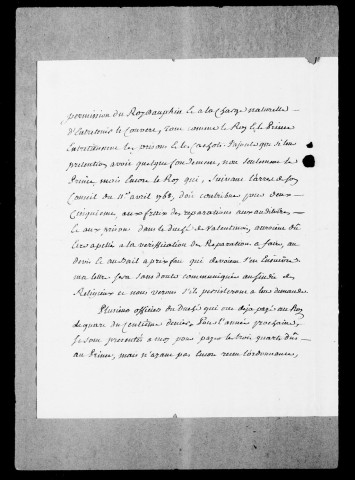 permission du Roy Dauphin et a la charge naturelle
d'Entretenir le Couvert, tout comme le Roy & le Prince
Entretiennent les prisons & les Cachots. De plus que si leur
pretention avoit quelque fondement, non seulement le
Prince mais Encore le Roy qui, suivant l'arrest de son
Conseil du 11e avril 1762, doit contribuer pour deux
Cinquieme, aux fraix des reparations aux auditoires
& aux prisons dans le duché de Valentinois, auroient dû
Etre apellés a la veriffication des Reparations a faire, au
devis & au Bail a prix fait qui devroient s'en Ensuivre
ma lettre sera sans doute communiquée au sindic des
Religieux et nous verrons s'ils persisteront a leur demande.
Plusieurs officiers du Duché qui ont deja payé au Roy
le quart du Centieme denier, Pour l'année prochaine,
se sont presentés a moy pour payer les trois quarts dûs
au Prince, mais n'ayant pas Encore receu l'ordonnance,